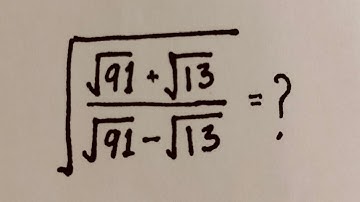 √((√91 + √13)/(√91 − √13)) = ?